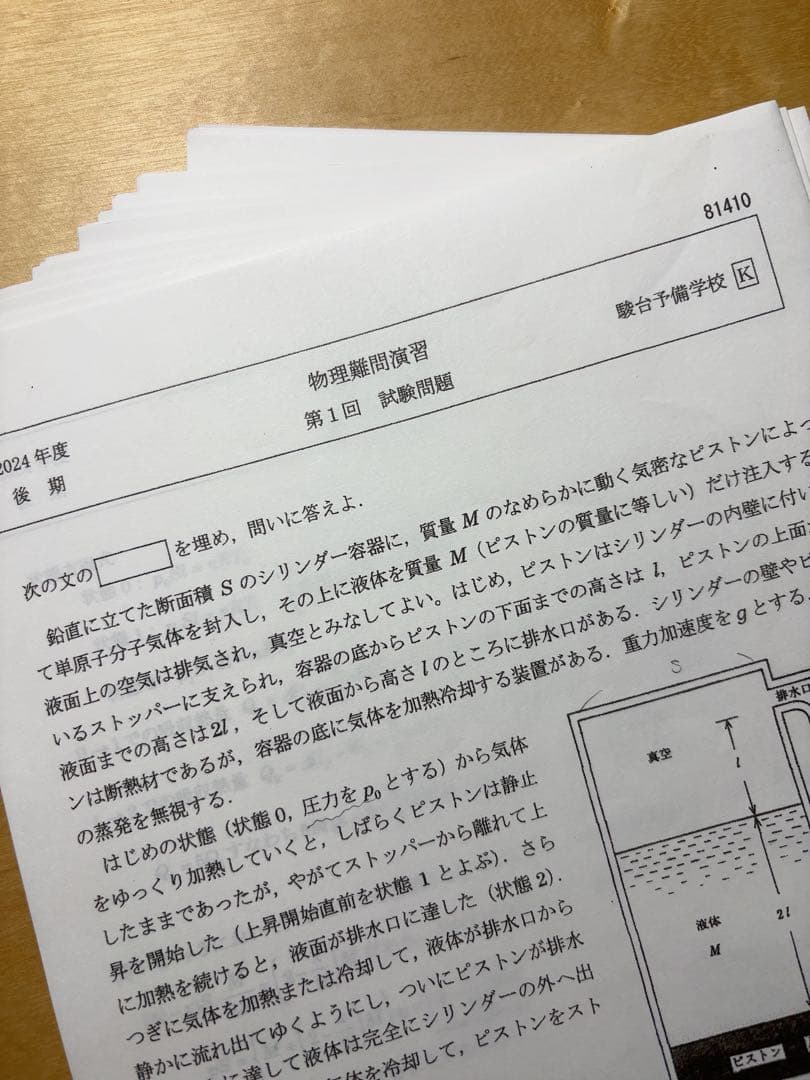 81410
駿台予備学校 K
物理難問演習
第1回 試験問題
2024年度
後期
次の文の を埋め，問いに答えよ．
鉛直に立てた断面積 S のシリンダー容器に，質量 M のなめらかに動く気密なピストンによっ
て単原子分子気体を封入し，その上に液体を質量 M（ピストンの質量に等しい）だけ注入する
液面上の空気は排気され，真空とみなしてよい。はじめ，ピストンはシリンダーの内壁に付い
いるストッパーに支えられ，容器の底からピストンの下面までの高さは l，ピストンの上面
液面までの高さは2l，そして液面から高さ l のところに排水口がある．シリンダーの壁やピ
ンは断熱材であるが，容器の底に気体を加熱冷却する装置がある．重力加速度を g とする．
の蒸発を無視する．
はじめの状態（状態0，圧力を p0 とする）から気体
をゆっくり加熱していくと，しばらくピストンは静止
したままであったが，やがてストッパーから離れて上
昇を開始した（上昇開始直前を状態1とよぶ）．さら
に加熱を続けると，液面が排水口に達した（状態2）．
つぎに気体を加熱または冷却して，液体が排水口から
静かに流れ出てゆくようにし，ついにピストンが排水
に達して液体は完全にシリンダーの外へ出
気体を冷却して，ピストンをスト
S
排水口
真空
l
液体
M
2l
ピストン